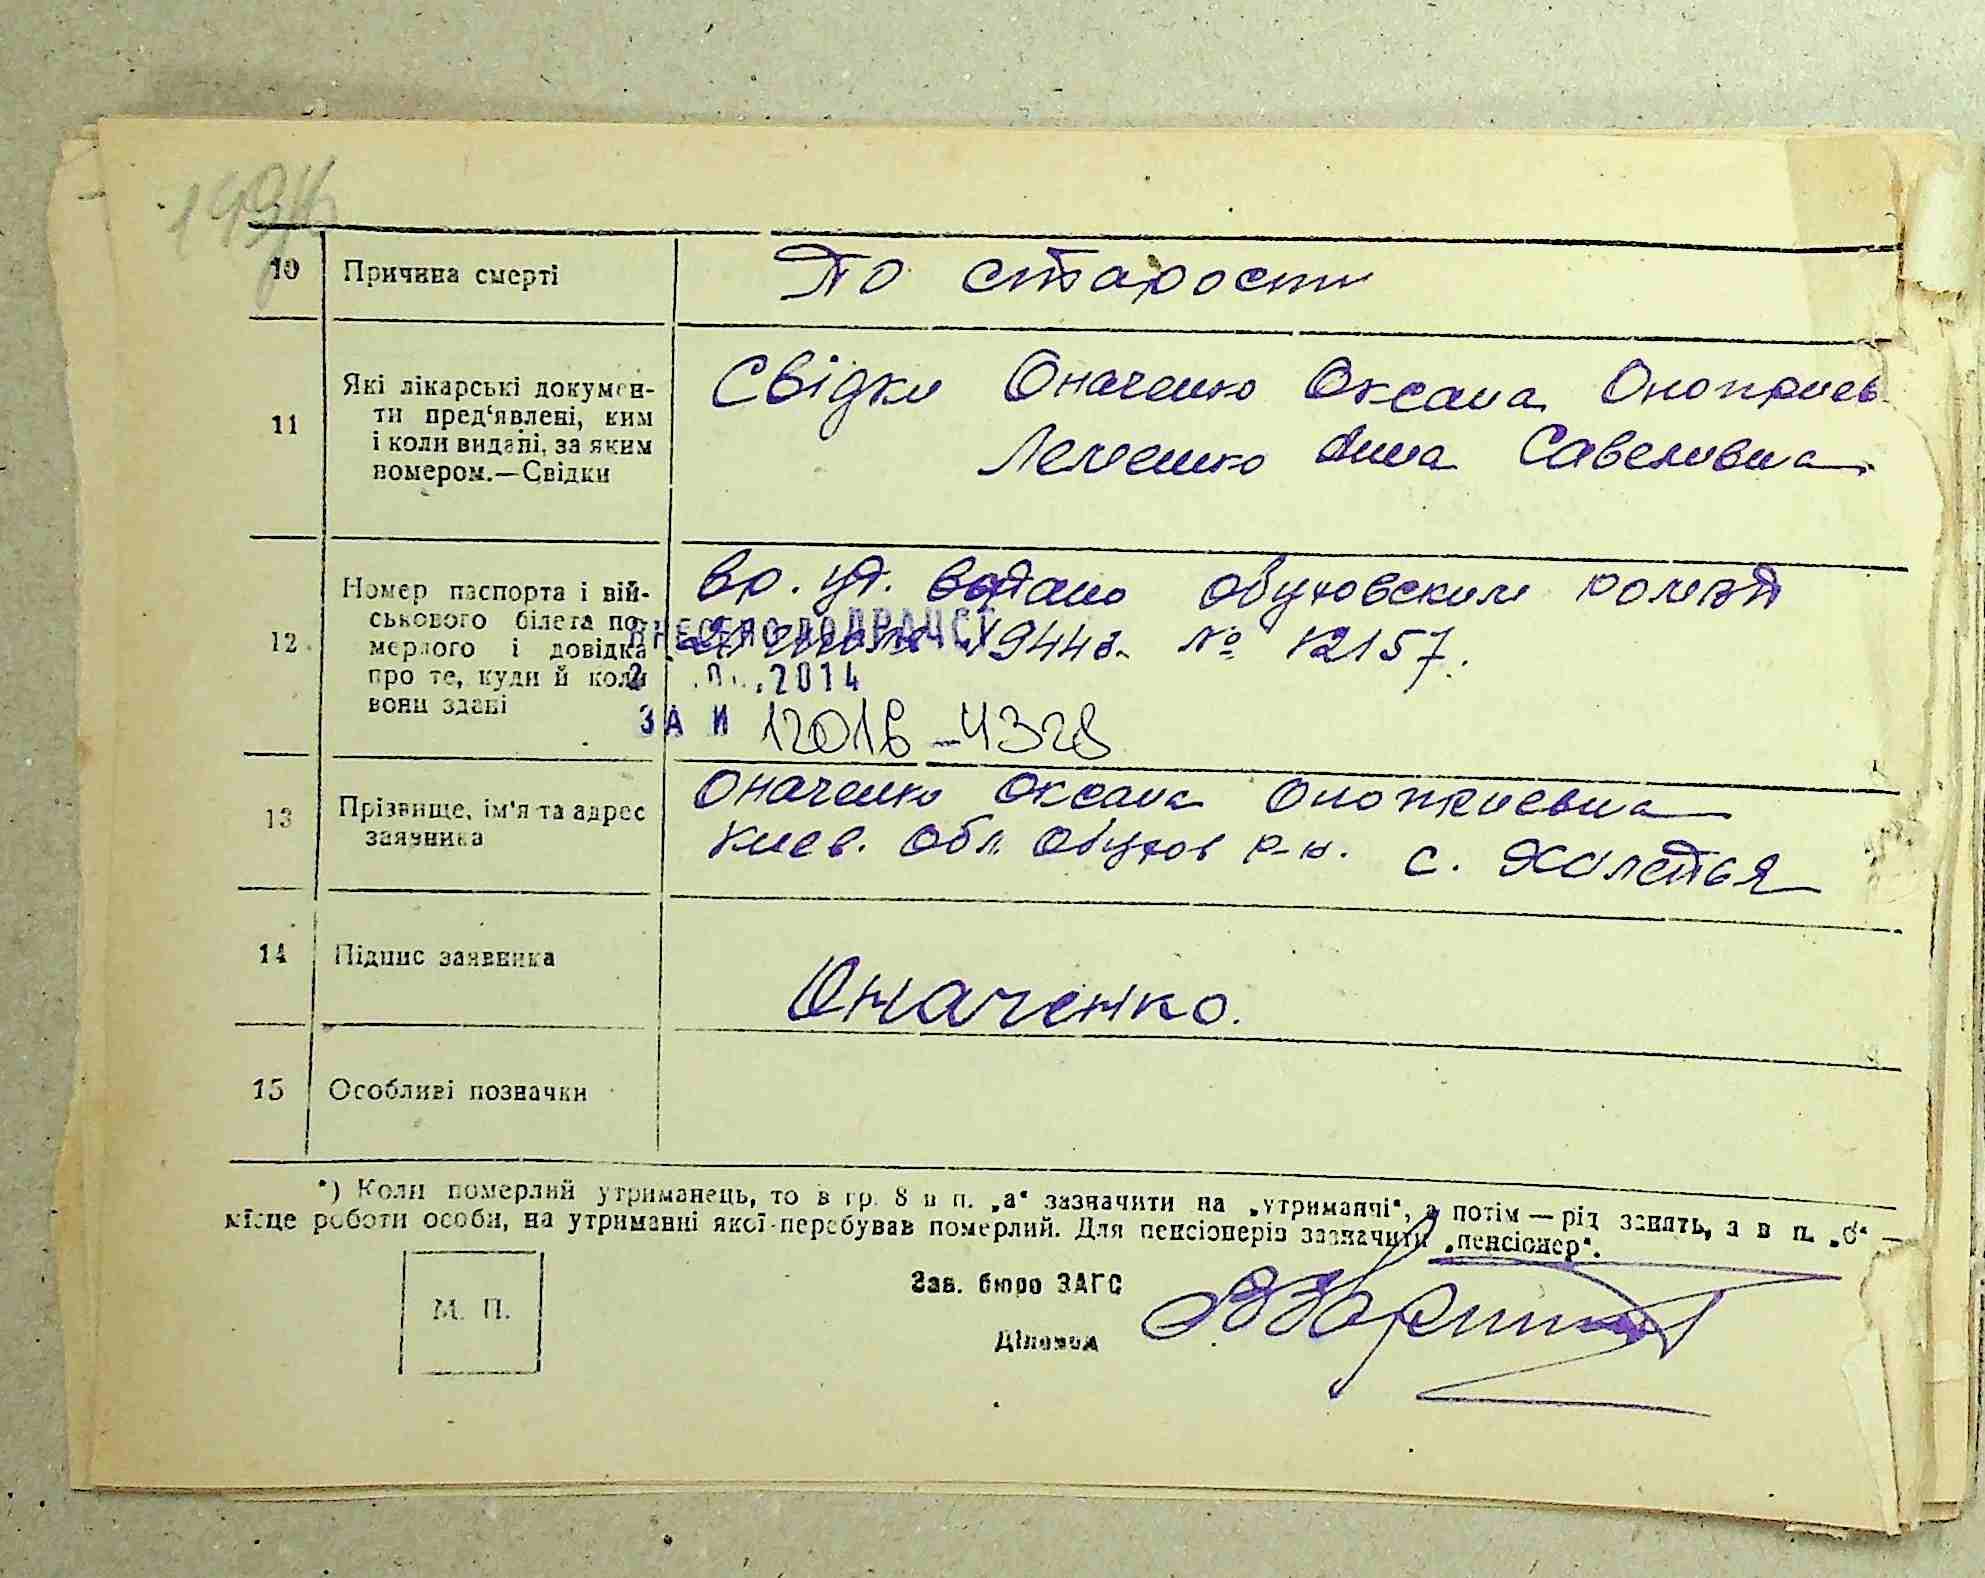 10 Причина смерті По старости
11 Які лікарські докумен-
ти пред'явлені, ким
і коли видані, за яким
номером.—Свідки
Свідки Оначенко Оксана Оноприев
Лемешко Анна Савеливна
12. Номер паспорта і вій-
ськового білета по-
мерлого і довідка
про те, куди й коли
вони здані
вр. уд. водано Обуховским
1944г. № 12157.
ВНЕСЕНО ДО ДРАЦСГ
2014
ЗА И 12016-4328
13 Прізвище, ім'я та адрес
заявника
Оначенко Оксана Оноприевна
Киев. Обл. Обухов р-н. с. Халепья
14 Підпис заявника
Оначенко.
15 Особливі позначки
*) Коли померлий утриманець, то в гр. 8 в п. „а“ зазначити на „утриманчі“, а потім — рід занять, а в п. „б“ —
місце роботи особи, на утриманні якої перебував померлий. Для пенсіонерів зазначити „пенсіонер“.
М. П.
Зав. бюро ЗАГС
Діловод